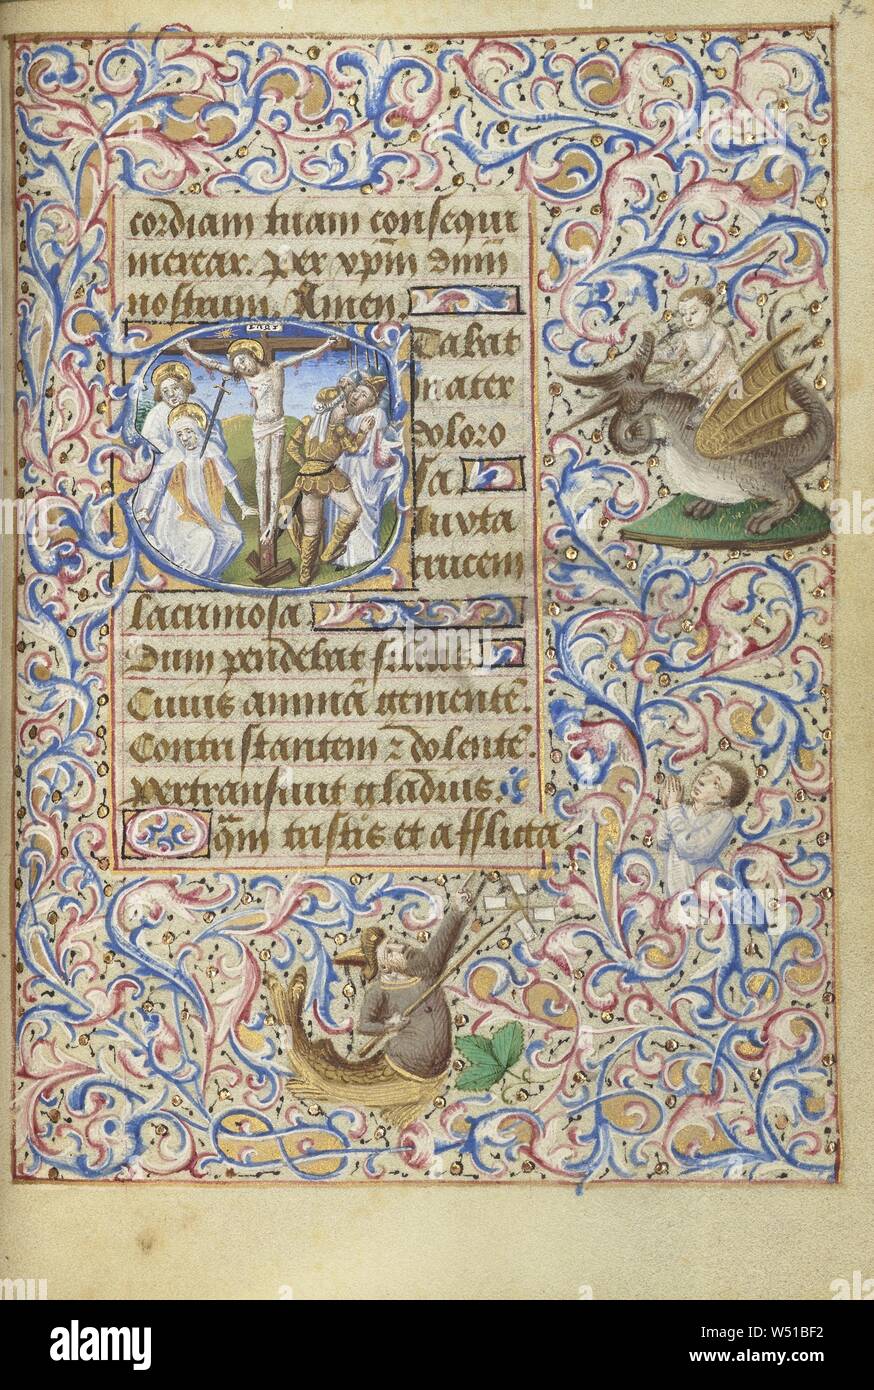 74
cordiam tuam consequi
merear. Per xp̄m dn̄m
nostrum. Amen.
INRI
Tabat
mater
doloro
sa
Iuxta
crucem
lacrimosa.
Dum pendebat filius
Cuius animā gementē.
Contristantem ⁊ dolentē.
pertransiuit gladius.
Qm̄ tristis et afflicta
alamy
alamy
Image ID: W51BF2
www.alamy.com